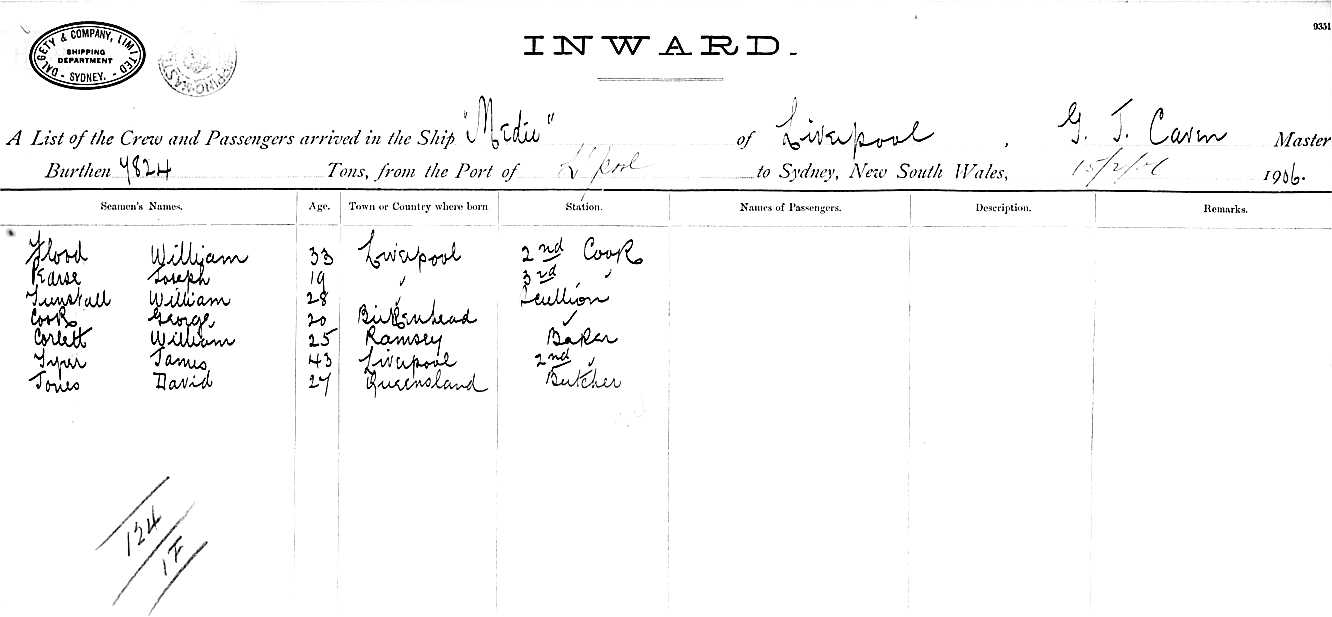 9351
DALGETY & COMPANY, LIMITED
SHIPPING
DEPARTMENT
- SYDNEY. -
INWARD.
A List of the Crew and Passengers arrived in the Ship "Medic" of Liverpool, G. J. Caven Master
Burthen 7824 Tons, from the Port of L'pool to Sydney, New South Wales, 15/2/06 1906.
Seamen's Names. Age. Town or Country where born Station. Names of Passengers. Description. Remarks.
Flood William 33 Liverpool 2nd Cook
Joseph 19 " 3rd "
Tunstall William 28 " Scullion
Cook George 20 Birkenhead "
Corlett William 25 Ramsey Baker
Tyrer James 43 Liverpool 2nd "
Jones David 27 Queensland Butcher
124
1F